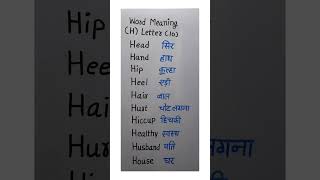 Word Meaning
(H) Letter (10)
Head सिर
Hand हाथ
Hip कुल्हा
Heel एड़ी
Hair बाल
Hurt चोट लगना
Hiccup हिचकी
Healthy स्वस्थ
Husband पति
House घर